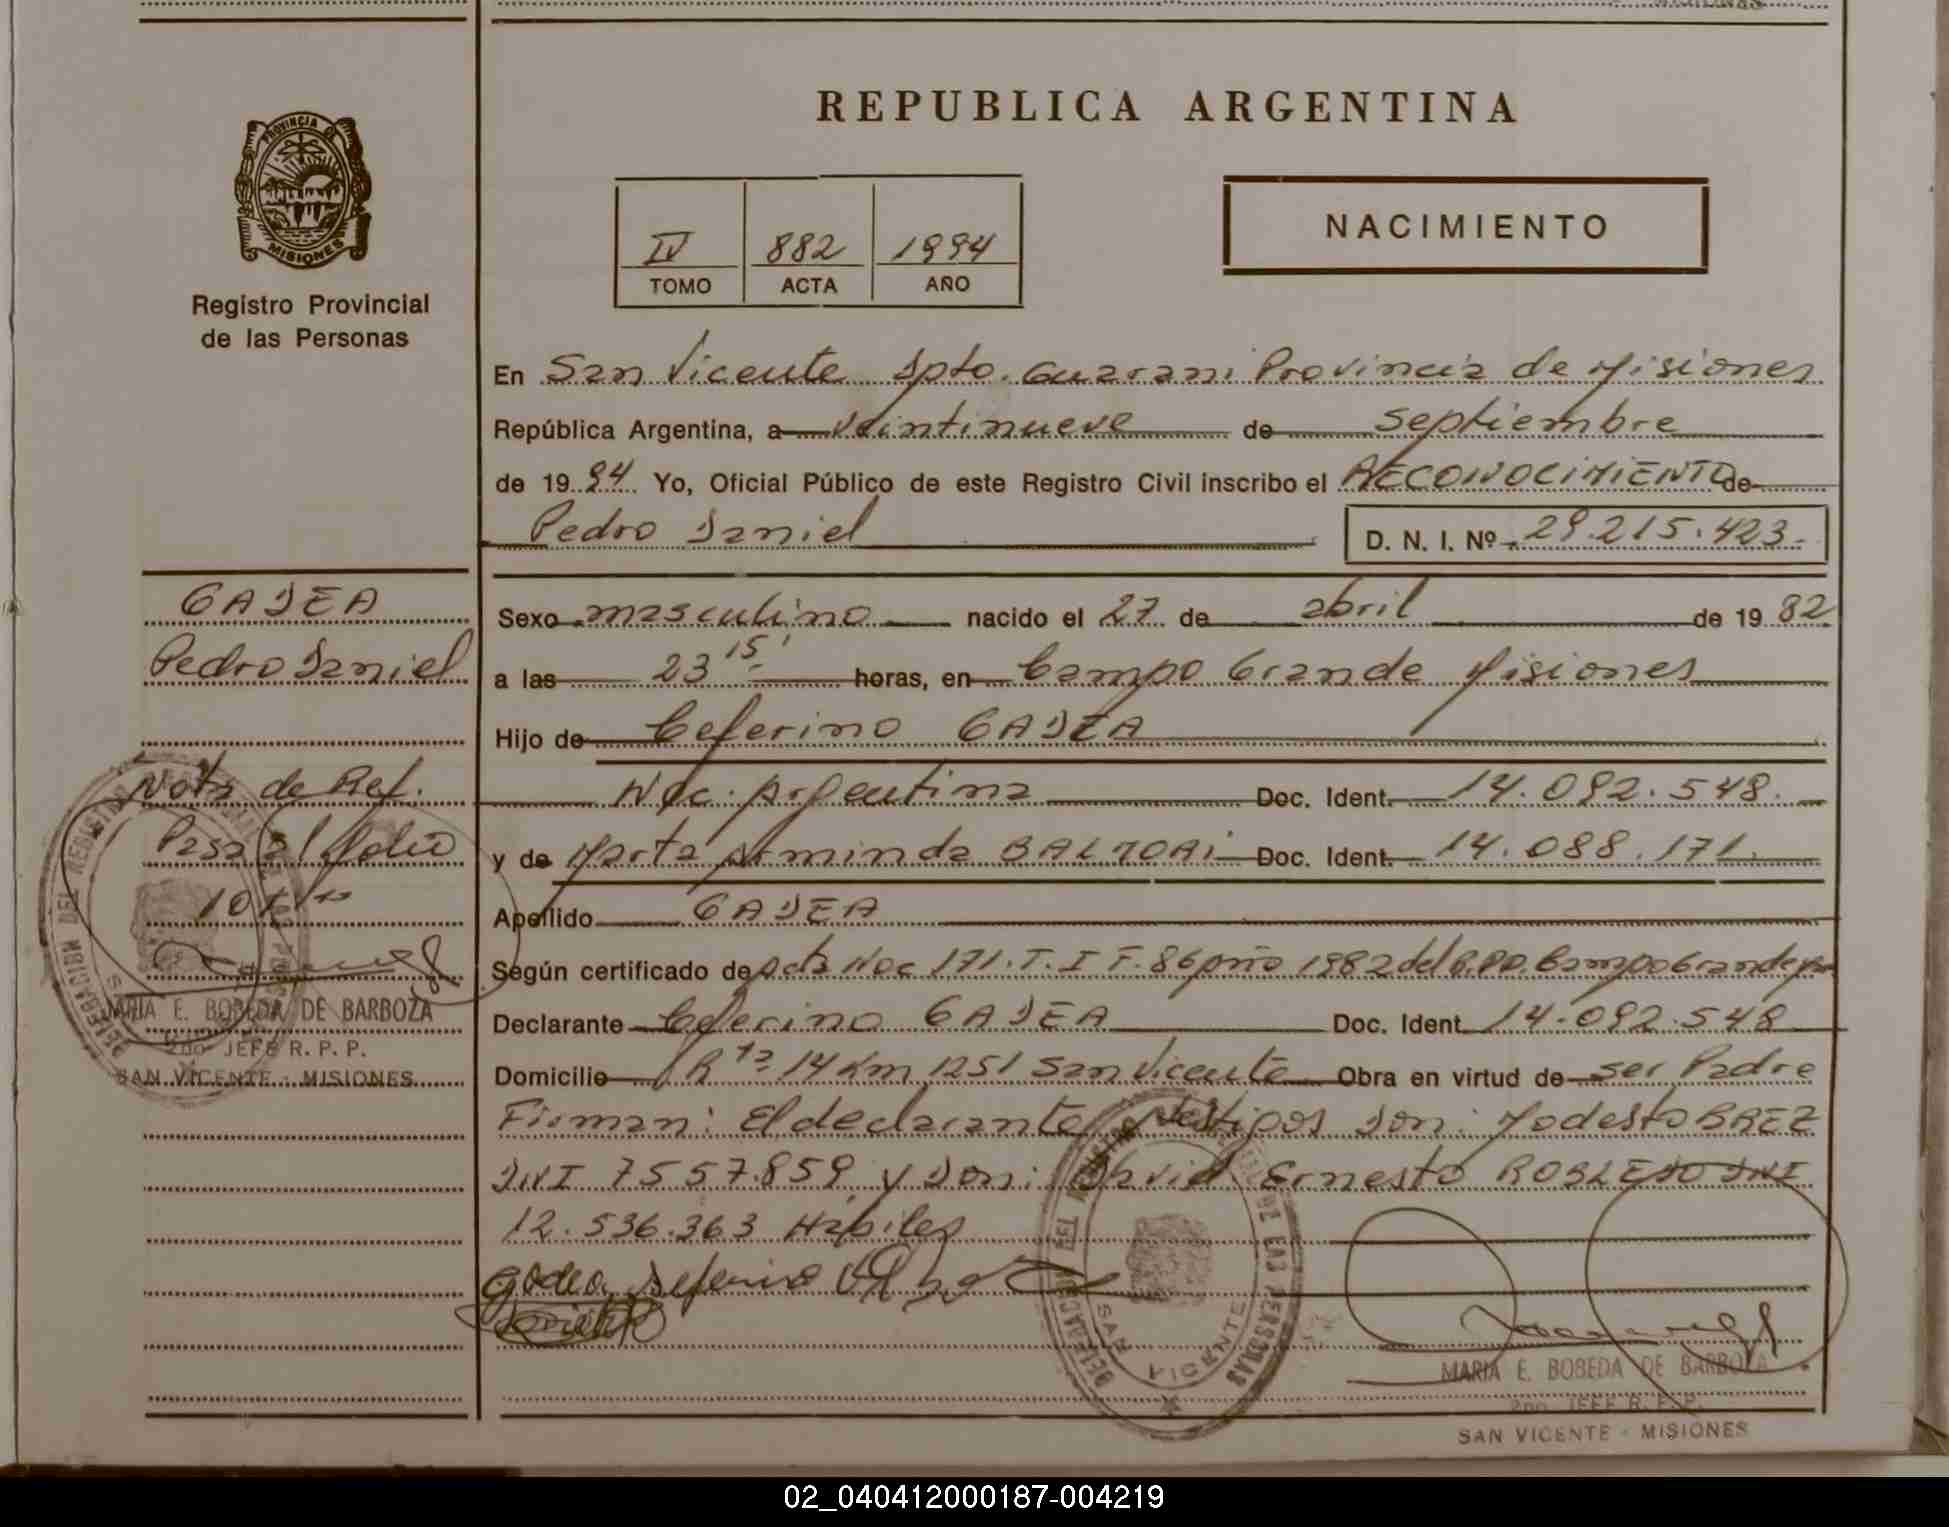 REPUBLICA ARGENTINA
PROVINCIA DE
MISIONES
Registro Provincial
de las Personas
IV 882 1994
TOMO ACTA AÑO
NACIMIENTO
En San Vicente Dpto. Guarani Provincia de Misiones
República Argentina, a veintinueve de septiembre
de 19 94 Yo, Oficial Público de este Registro Civil inscribo el RECONOCIMIENTO de
Pedro Daniel D. N. I. Nº 29.215.423
GADEA
Pedro Daniel
Sexo masculino nacido el 27 de abril de 19 82
a las 23 15' horas, en Campo Grande Misiones
Hijo de Ceferino GADEA
Nac. Argentina Doc. Ident. 14.092.548
y de Marta Arminda Doc. Ident. 14.088.171
Apellido GADEA
Según certificado de Acta Nac 171. T. I F. 86 año 1982 del R.P.P. Campo Grande
Declarante Ceferino GADEA Doc. Ident. 14.092.548
Domicilio Rta 14 Km 1251 San Vicente Obra en virtud de ser Padre
Firman: El declarante testigos Don: Modesto BAEZ
DNI 7557.859 y Don: David Ernesto ROBLEDO DNI
12.536.363 Hábiles
Nota de Ref.
Pasa al folio
MARIA E. BOBEDA DE BARBOZA
2do JEFE R. P. P.
SAN VICENTE - MISIONES
DELEGACION DEL REGISTRO DE LAS PERSONAS
SAN VICENTE
MARIA E. BOBEDA DE BARBOZA
2do JEFE R. P. P.
SAN VICENTE - MISIONES
02_040412000187-004219